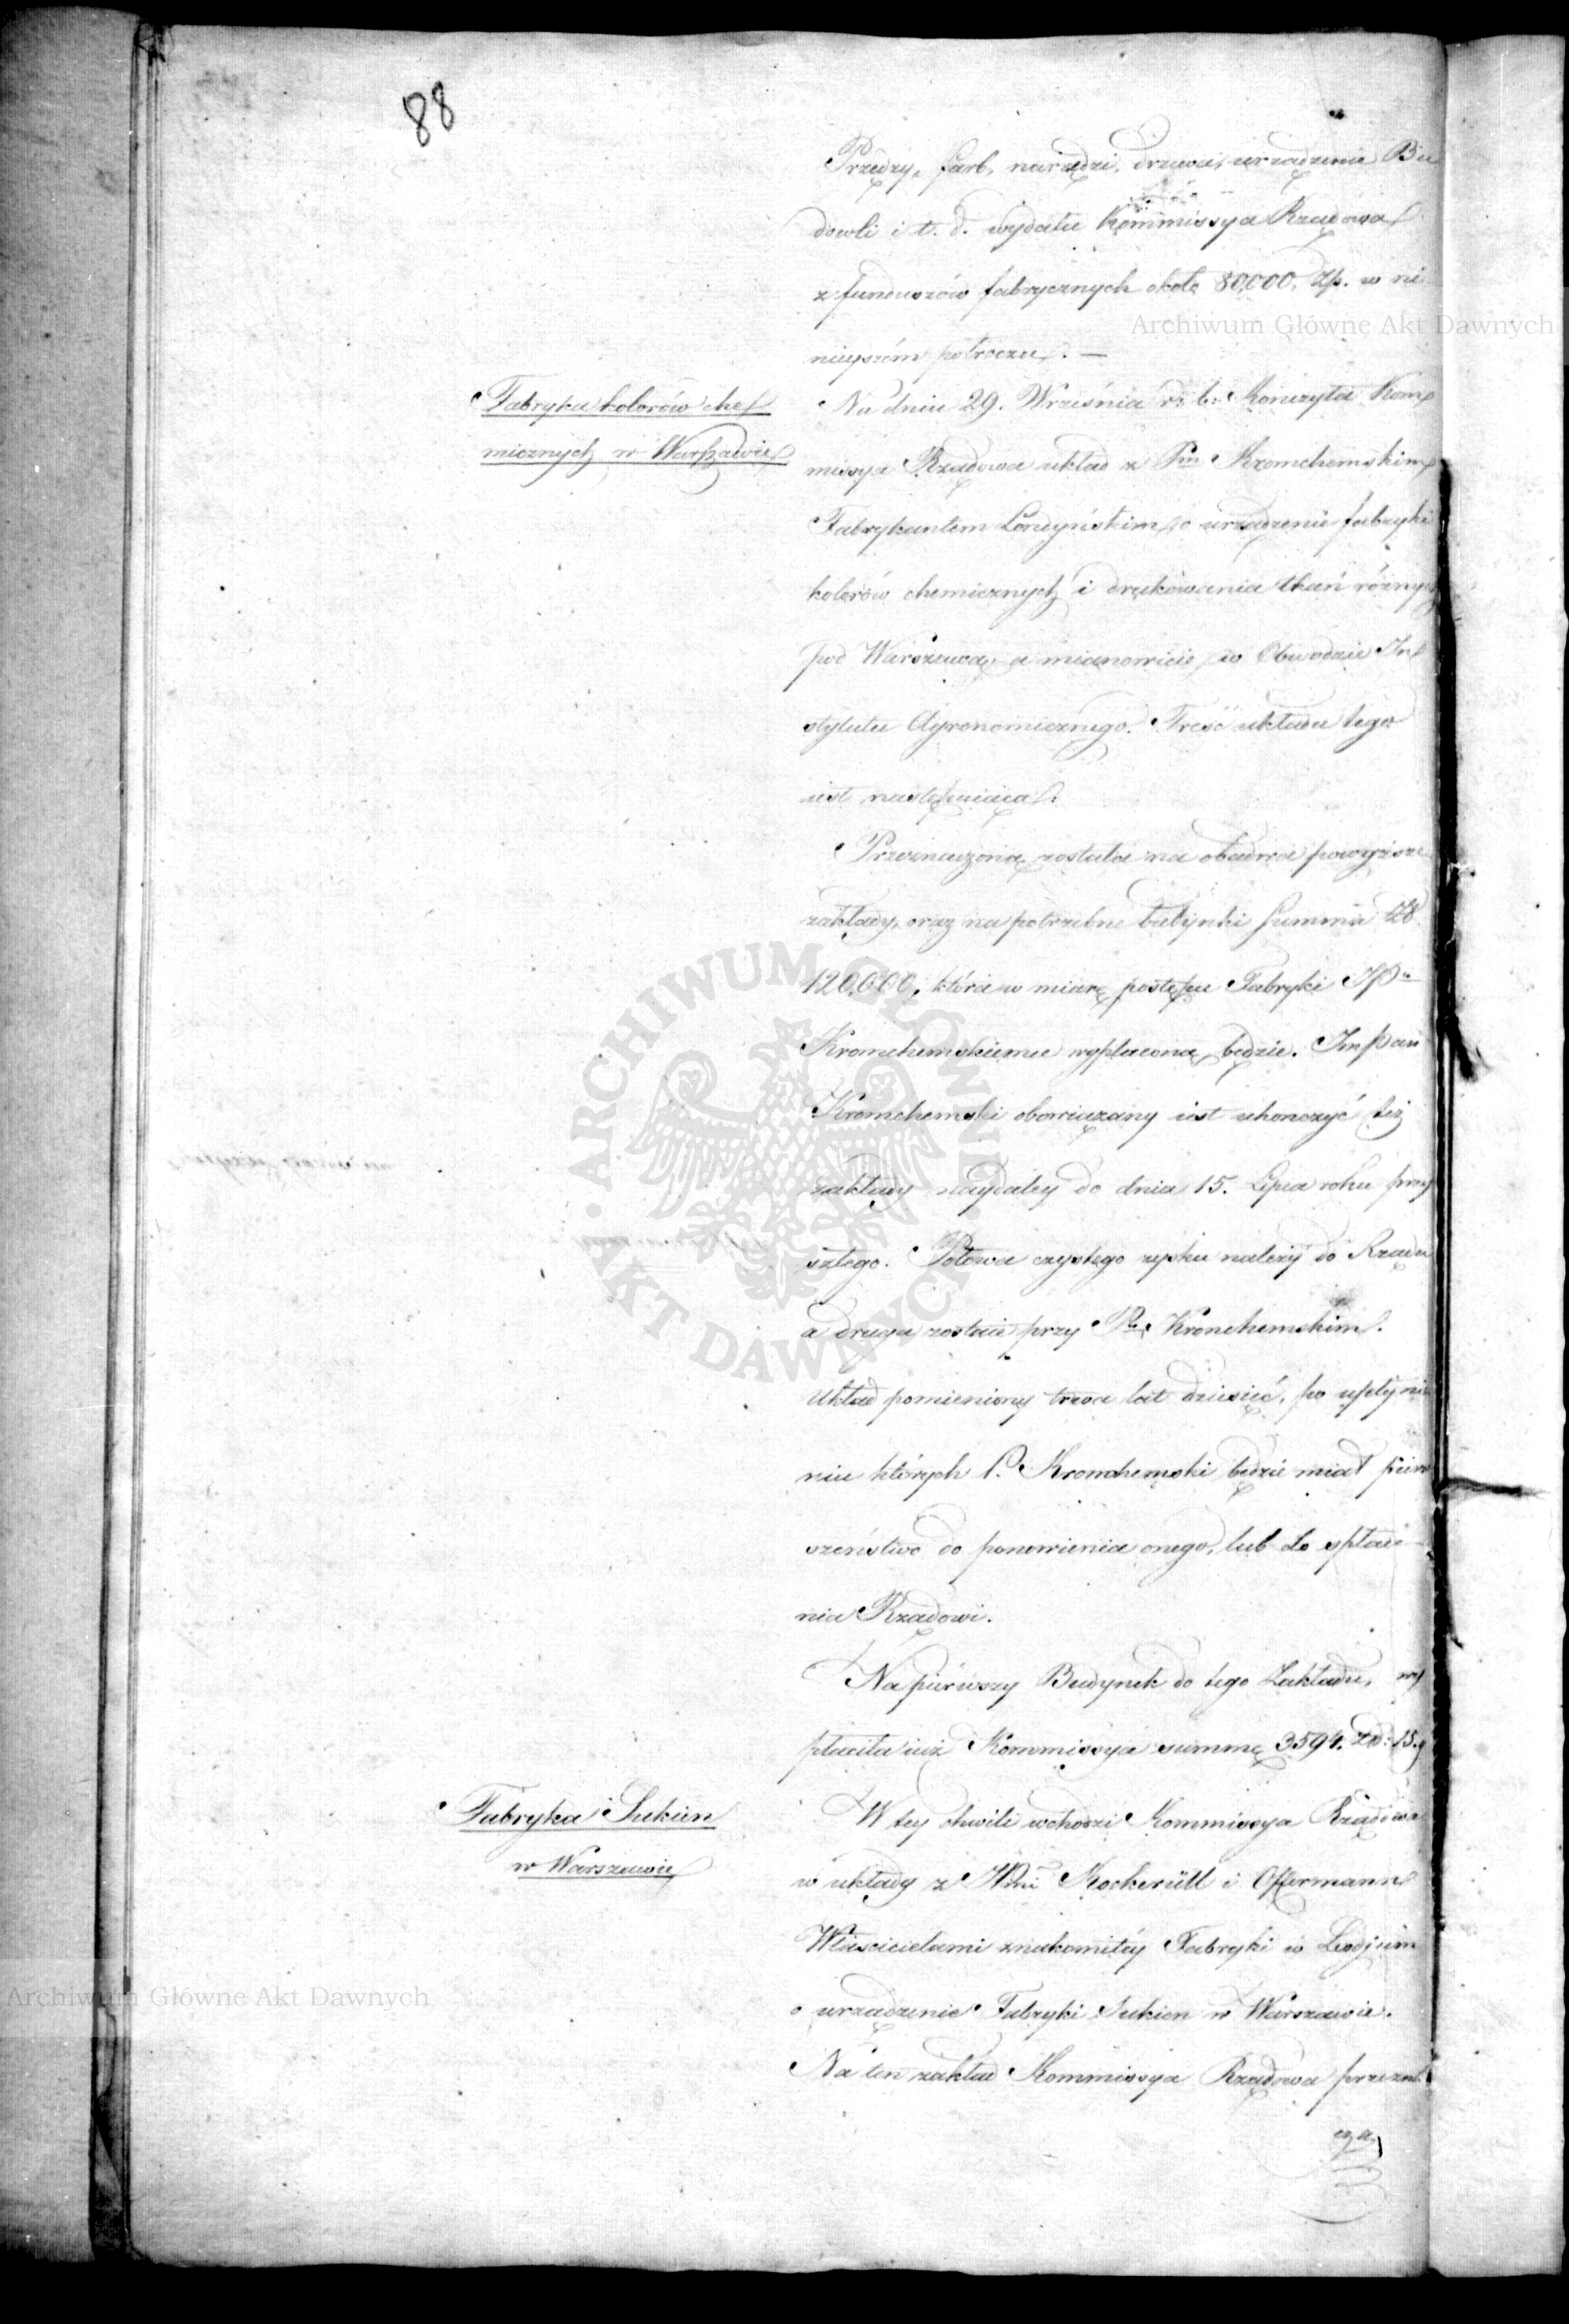 88
Przędzy, farb, narzędzi, drzewa, urządzenie Bu
dowli i t. d. wydała Kommissya Rządowa
z funduszów fabrycznych około 80,000. Zp. w ni
nieyszém półroczu. —
Fabryka kolorów che
micznych w Warszawie
Na dniu 29. Września r: b: skończyła Kom
missya Rządowa układ z Pm Kromchemskim
Fabrykantem Londyńskim, o urządzenie fabryki
kolorów chemicznych i drukowania tkań różnych
pod Warszawą, a mianowicie w Obwodzie In
stytutu Agronomicznego. Treść układu tego
iest następuiąca.
Przeznaczoną została na obadwa powyższe
zakłady, oraz na potrzebne budynki summa Zł
120,000, która w miarę postępu Fabryki JP
Kromchemskiemu wypłaconą będzie. JmPan
Kromchemski obowiązany iest ukończyć też
zakłady naydaley do dnia 15. Lipca roku przy
szłego. Połowa czystego zysku należy do Rządu
a druga zostaie przy Pu Kromchemskim.
Układ pomieniony trwa lat dziesięć, po upłynie
niu których P. Kromchemski będzie miał pierw
szeństwo do ponowienia onego, lub do spłace-
nia Rządowi.
Na piérwszy Budynek do tego Zakładu, wy
płaciła iuż Kommissya summę 3594. Zł: 15. g
Fabryka Sukien
w Warszawie
W tey chwili wchodzi Kommissya Rządowa
w układy z JPmi Kockerütt i Offermann
Właścicielami znakomitéy Fabryki w Leodjum
o urządzenie Fabryki Sukien w Warszawie.
Na ten zakład Kommissya Rządowa przezna
cza
Archiwum Główne Akt Dawnych
ARCHIWUM GŁÓWNE AKT DAWNYCH
Archiwum Główne Akt Dawnych